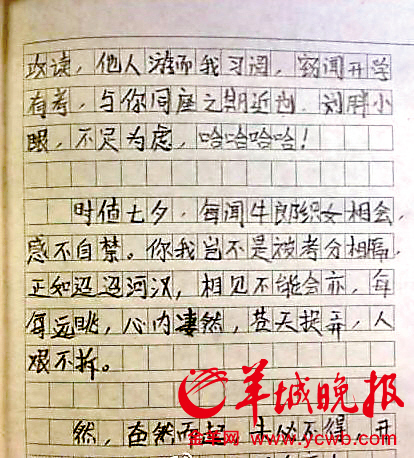 攻读，他人游而我习阅，窃闻开学
有考，与你同座之期近也。刘胖小
眼，不足为虑，哈哈哈哈！
时值七夕，每闻牛郎织女相会，
感不自禁。你我岂不是被考分相隔，
正如迢迢河汉，相见不能会亦，每
每远眺，心内凄然，苍天捉弄，人
艰不拆。
羊城晚报
然，奋然而起，未必不得，开
www.ycwb.com